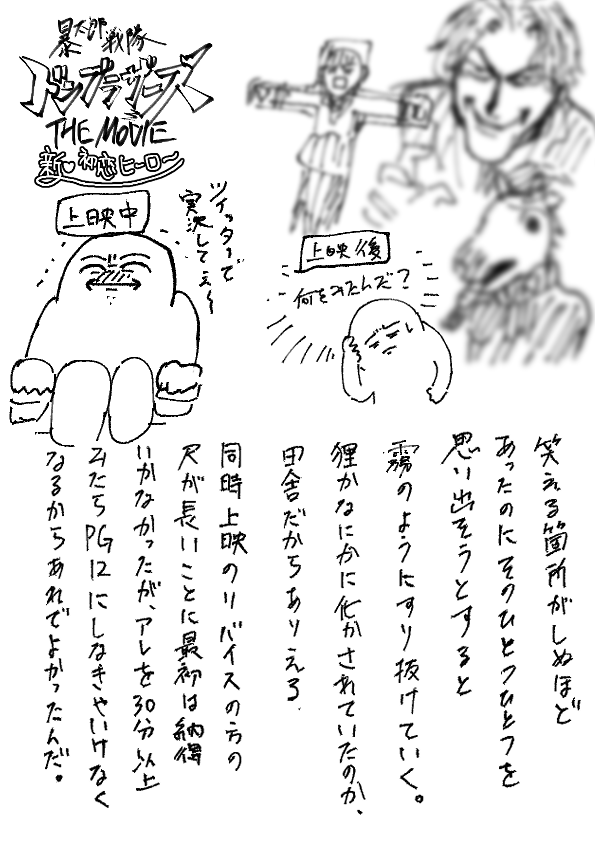 暴太郎戦隊
ドンブラザーズ
THE MOVIE
新♡初恋ヒーロー
上映中
ツイッターで
実況してぇ〜
上映後
何をみたんだ?
笑える箇所がしぬほど
あったのにそのひとつひとつを
思い出そうとすると
霧のようにすり抜けていく。
狸かなにかに化かされていたのか、
田舎だからありえる.
同時上映のリバイスの方の
尺が長いことに最初は納得
いかなかったが、アレを30分以上
みたらPG12にしなきゃいけなく
なるからあれでよかったんだ。